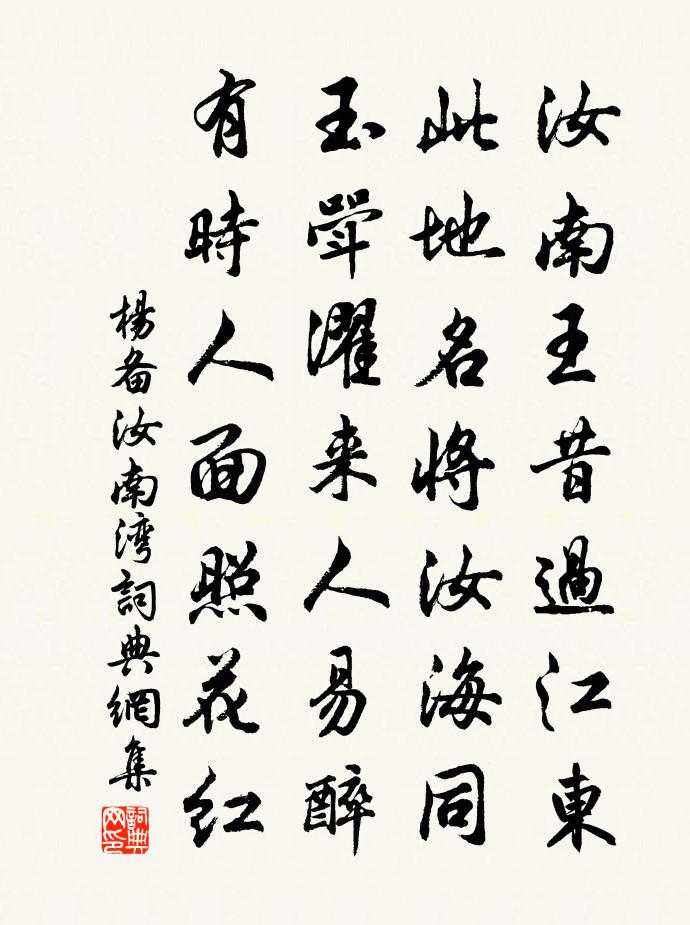 汝南王昔過江東
此地名將汝海同
玉斝濯来人易醉
有時人面照花紅
楊备汝南湾詞典網集
詞典网印